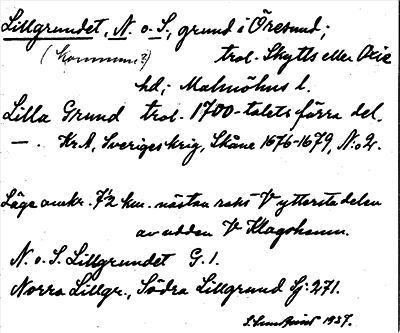 Lillgrundet, N. o. S., grund i Öresund;
(kommun?) trol. Skytts eller Oxie
hd; Malmöhus l.
Lilla Grund trol. 1700-talets förra del.
—. Kr.A, Sveriges krig, Skåne 1676-1679, N:o 2.
Läge omkr. 7½ km. nästan rakt V yttersta delen
av udden V Klagshamn.
N. o. S. Lillgrundet G. 1.
Norra Lillgr., Södra Lillgrund Sj: 271.
1937.